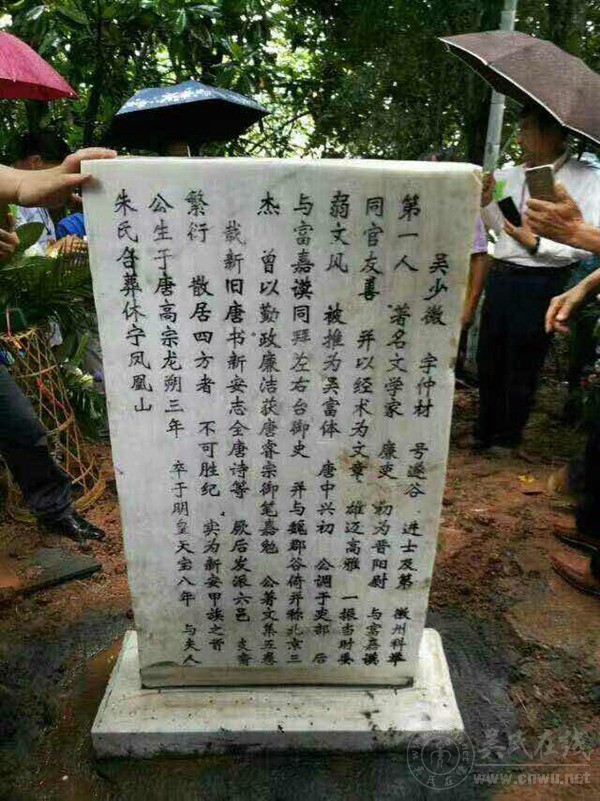 吴少微 字仲材 号遂谷 进士及第 徽州科举
第一人 著名文学家 廉吏 初为晋阳尉 与富嘉谟
同官友善 并以经术为文章 雄迈高雅 一振当时萎
弱文风 被推为吴富体 唐中兴初 公调于吏部 后
与富嘉谟同拜左右台御史 并与魏郡谷倚并称北京三
杰 曾以勤政廉洁获唐睿宗御笔嘉勉 公著文集五卷
载新旧唐书新安志全唐诗等 厥后发派六邑 支裔
繁衍 散居四方者 不可胜纪 实为新安甲族之首
公生于唐高宗龙朔三年 卒于明皇天宝八年 与夫人
朱氏合葬休宁凤凰山
吴氏在线
www.cnwu.net